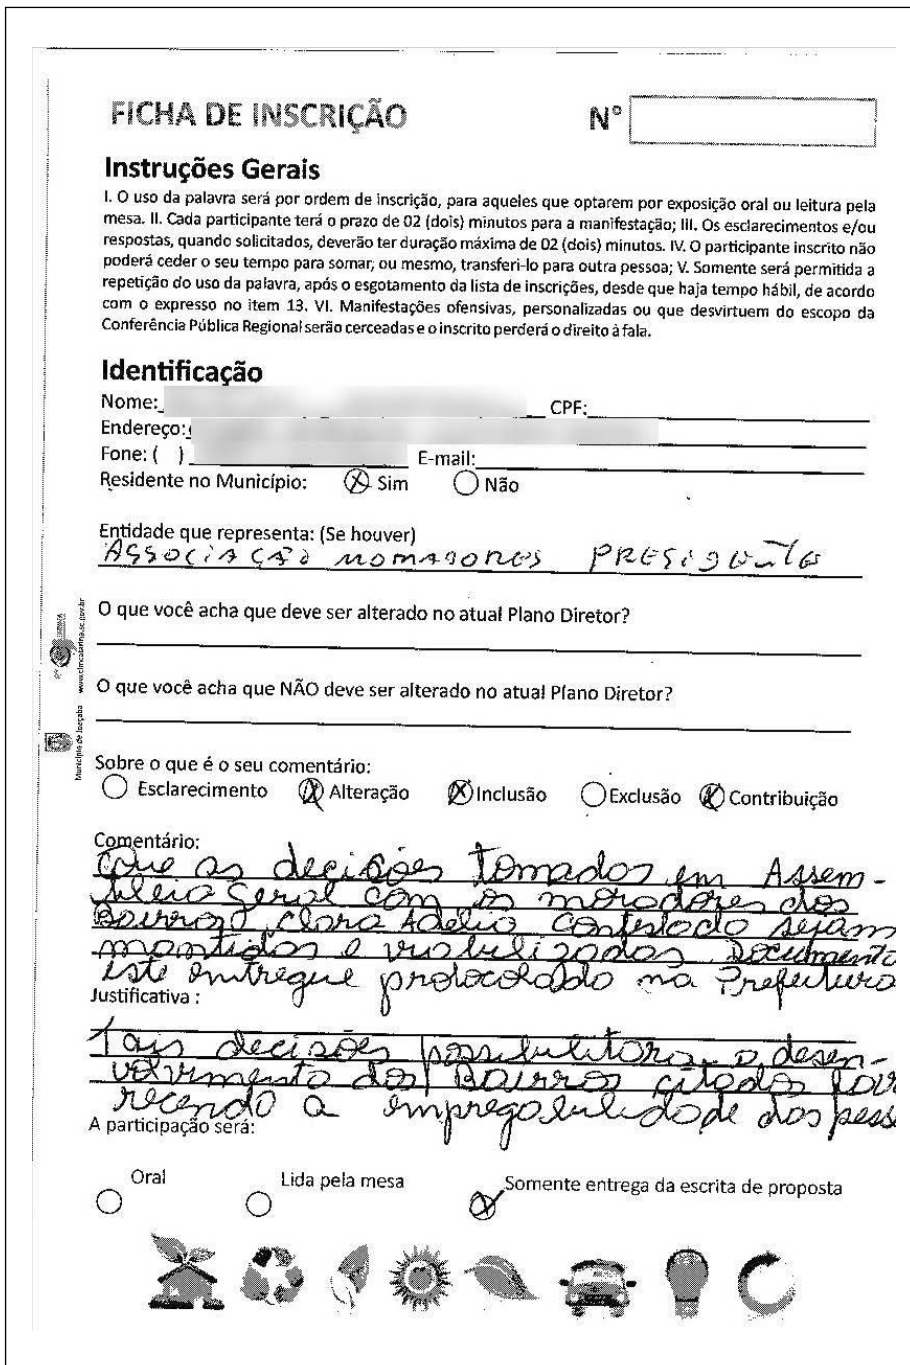 FICHA DE INSCRIÇÃO
N°
Instruções Gerais
I. O uso da palavra será por ordem de inscrição, para aqueles que optarem por exposição oral ou leitura pela
mesa. II. Cada participante terá o prazo de 02 (dois) minutos para a manifestação; III. Os esclarecimentos e/ou
respostas, quando solicitados, deverão ter duração máxima de 02 (dois) minutos. IV. O participante inscrito não
poderá ceder o seu tempo para somar, ou mesmo, transferi-lo para outra pessoa; V. Somente será permitida a
repetição do uso da palavra, após o esgotamento da lista de inscrições, desde que haja tempo hábil, de acordo
com o expresso no item 13. VI. Manifestações ofensivas, personalizadas ou que desvirtuem do escopo da
Conferência Pública Regional serão cerceadas e o inscrito perderá o direito à fala.
Identificação
Nome: CPF:
Endereço:
Fone: ( ) E-mail:
Residente no Município: Sim Não
Entidade que representa: (Se houver)
ASSOCIAÇÃO MORADORES PRESIDENTE
O que você acha que deve ser alterado no atual Plano Diretor?
O que você acha que NÃO deve ser alterado no atual Plano Diretor?
www.cimcatarina.sc.gov.br
Município de Joaçaba
Sobre o que é o seu comentário:
Esclarecimento Alteração Inclusão Exclusão Contribuição
Comentário:
Que as decisões tomadas em Assem-
bleia Geral com os moradores dos
Bairros Clara Adelia Contestado sejam
mantidas e viabilizadas Documento
este entregue protocolado na Prefeitura
Justificativa :
Tais decisões possibilitora o desen-
volvimento dos Bairros citados favo
recendo a empregabilidade das pess
A participação será:
Oral Lida pela mesa Somente entrega da escrita de proposta